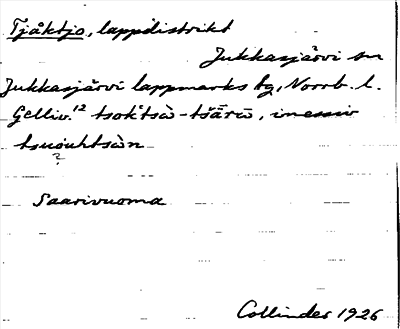 Tjåktjo, lappdistrikt
Jukkasjärvi sn
Jukkasjärvi lappmarks tg, Norrb. l.
Gelliv.¹² tsoktsò-tšārò, inessiv
tsuouhtsòn
?
Saarivuoma
Collinder 1926